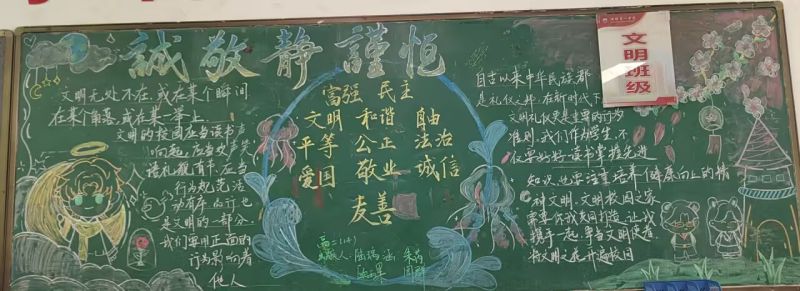 誠敬静謹恒
文明无处不在,或在某个瞬间
在某个角落,或在某一举止
文明的校园应当读书声
响起,应当欢声笑
语礼貌有节,应当
行为规范活
动有序的行也
是文明的一部分,
我们要用正面的
行为影响着
他人
富强 民主
文明 和谐 自由
平等 公正 法治
爱国 敬业 诚信
友善
高二(14)
自古以来中华民族都
是礼仪之邦,在新时代下
文明礼仪更是重要的行为
准则,我们作为学生,不
仅要好好读书掌握先进
知识,也要注意培养健康向上的情
文明,文明校园之家
需要你我共同打造,让我
携手一起,争当文明使者
将文明之花开遍校园
文明班级